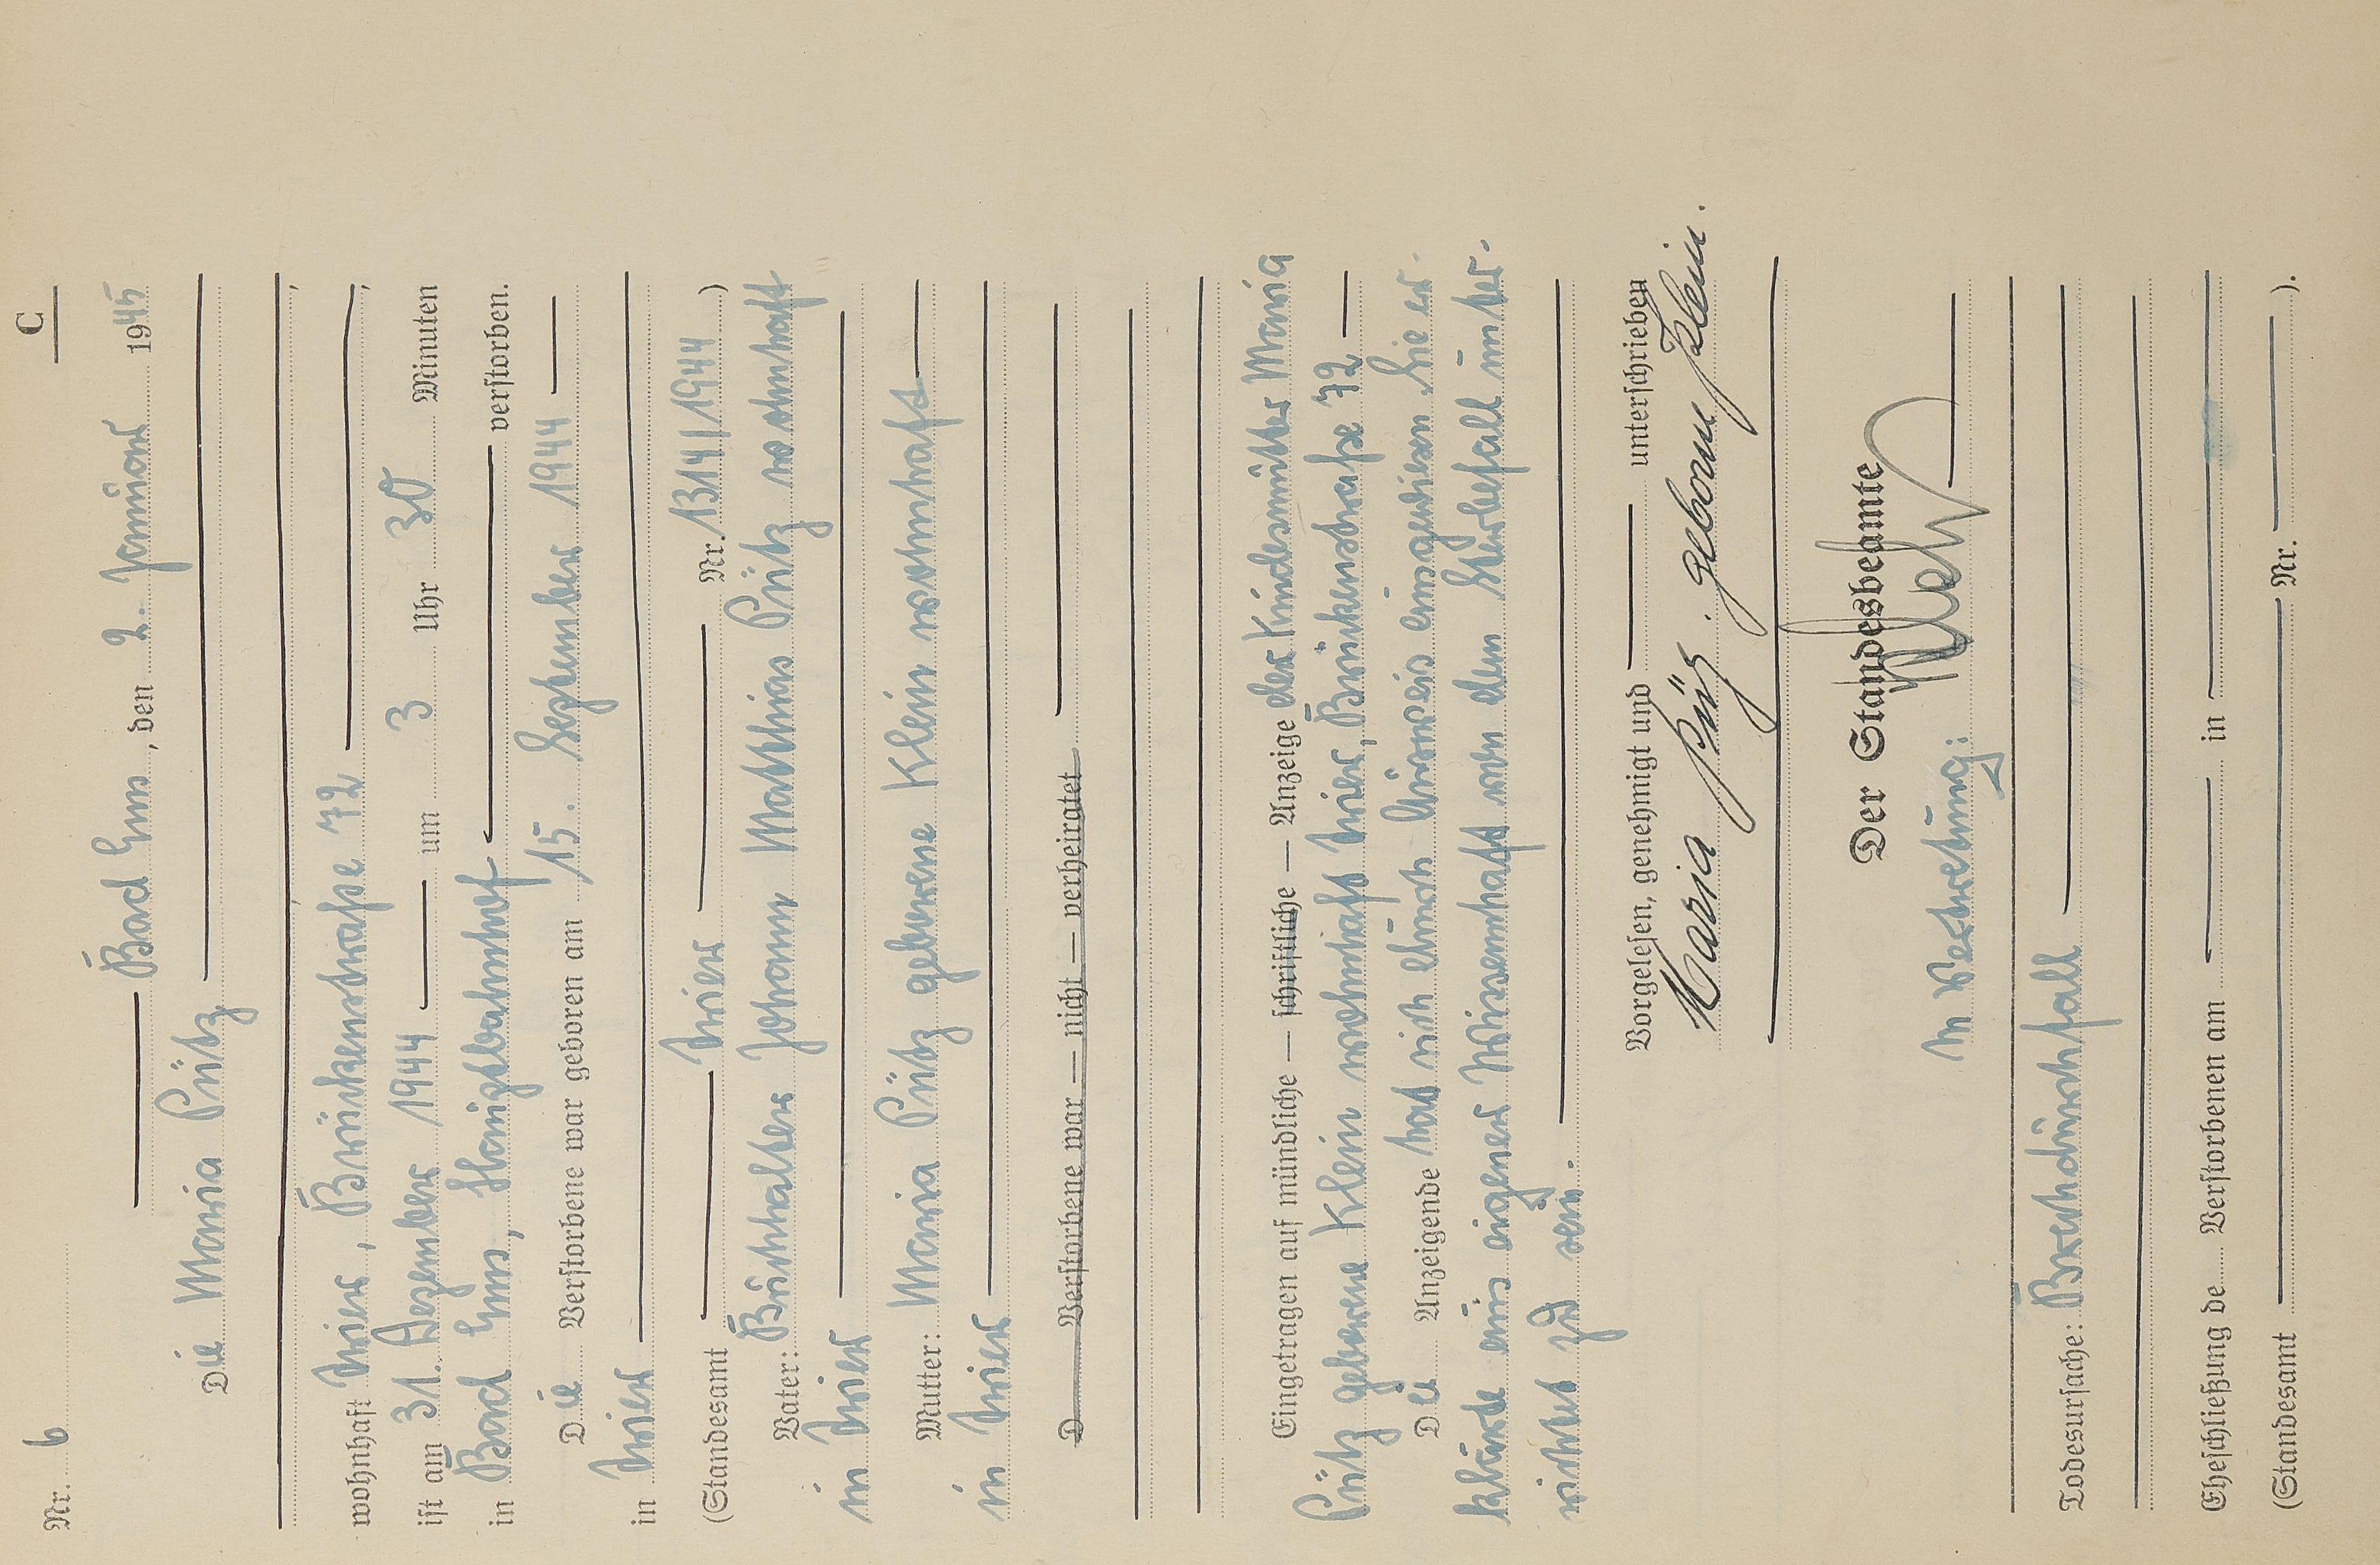 C
Nr. 6
Bad Ems, den 2. Januar 1945
Die Maria Pütz
wohnhaft Trier, Brückenstraße 72
ist am 31. Dezember 1944 um 3 Uhr 30 Minuten
in Bad Ems, Hauptbahnhof verstorben.
Die Verstorbene war geboren am 15. September 1944
in Trier
(Standesamt Trier Nr. 1314/1944)
Vater: Buchhalter Johann Matthias Pütz wohnhaft
in Trier
Mutter: Maria Pütz geborene Klein wohnhaft
in Trier
D Verstorbene war — nicht — verheiratet
Eingetragen auf mündliche — schriftliche — Anzeige der Kindesmutter Maria
Pütz geborene Klein wohnhaft Trier, Brückenstraße 72
Die Anzeigende hat sich durch Ausweis ausgewiesen. Sie er-
klärte aus eigener Wissenschaft von dem Sterbefall unter-
richtet zu sein.
Vorgelesen, genehmigt und unterschrieben
Maria Pütz. geborene Klein.
Der Standesbeamte
In Vertretung:
Todesursache: Brechdurchfall
Eheschließung de Verstorbenen am in
(Standesamt Nr. ).